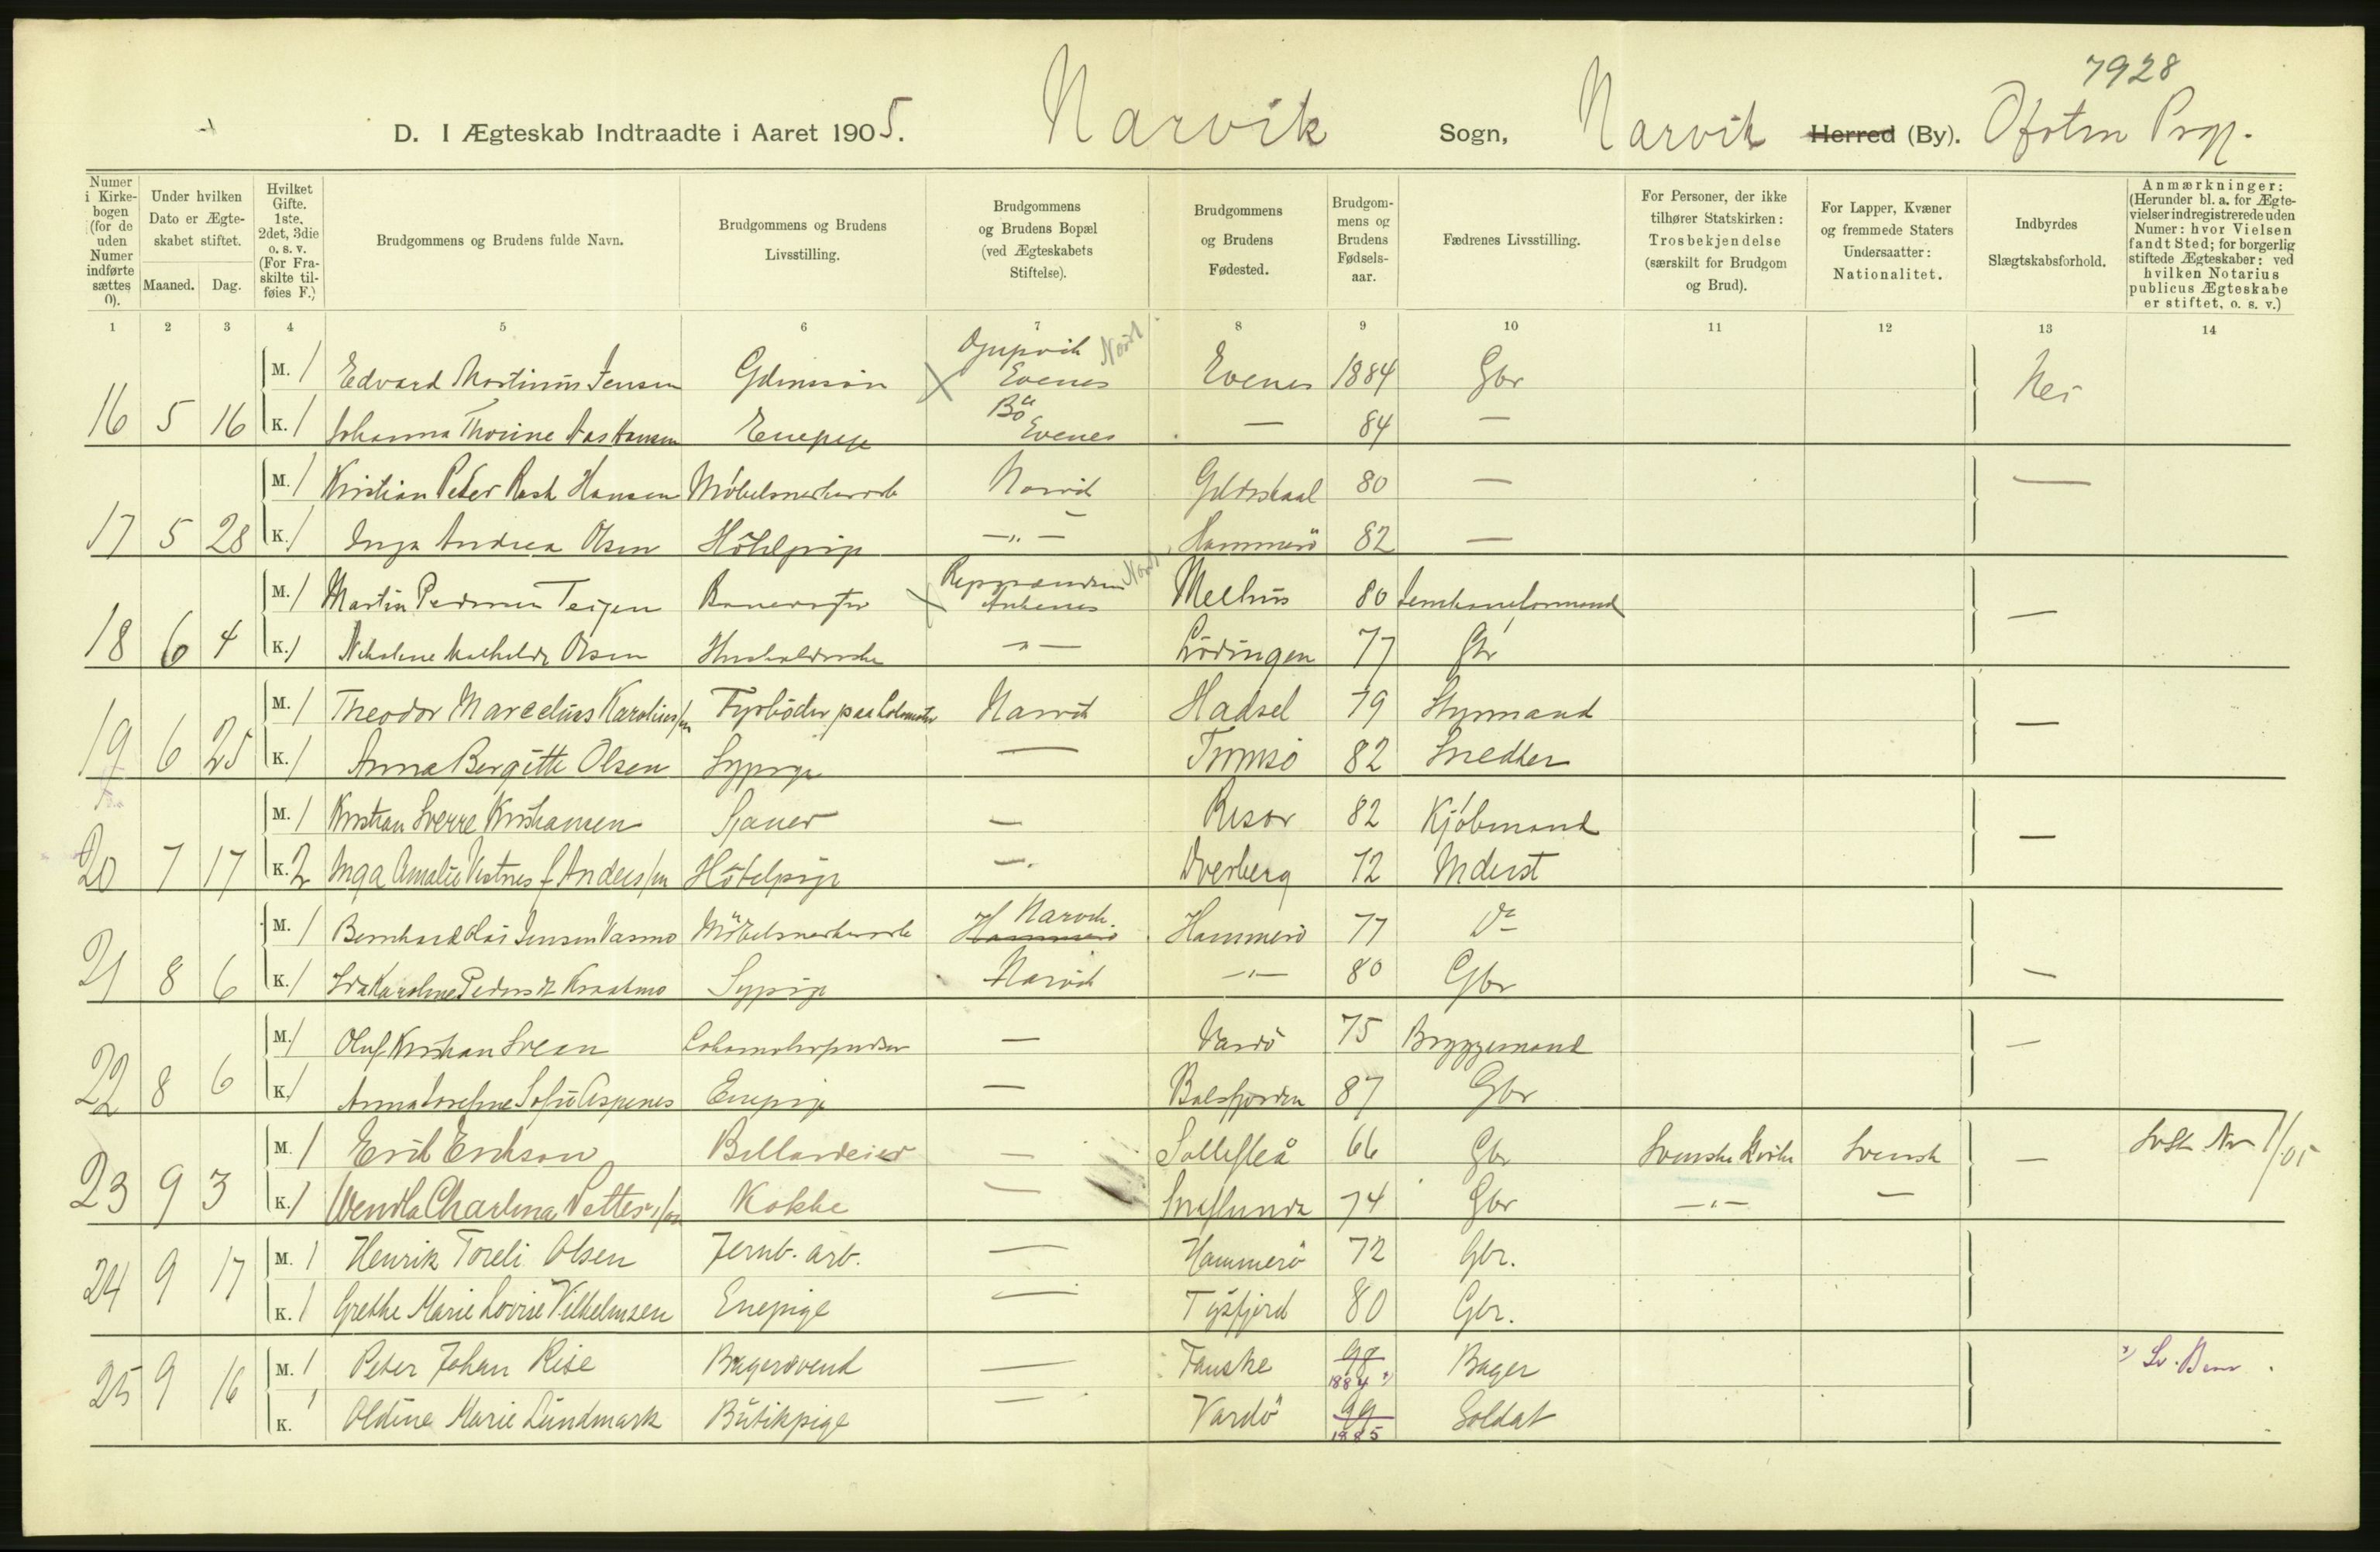 7928
D. I Ægteskab Indtraadte i Aaret 1905. Narvik Sogn, Narvik Herred (By). Ofoten Prgj.
Numer i Kirkebogen (for de uden Numer indførte sættes 0).
Under hvilken Dato er Ægteskabet stiftet.
Maaned. Dag.
Hvilket Gifte. 1ste, 2det, 3die o. s. v. (For Fraskilte tilføies F.)
Brudgommens og Brudens fulde Navn.
Brudgommens og Brudens Livsstilling.
Brudgommens og Brudens Bopæl (ved Ægteskabets Stiftelse).
Brudgommens og Brudens Fødested.
Brudgommens og Brudens Fødselsaar.
Fædrenes Livsstilling.
For Personer, der ikke tilhører Statskirken: Trosbekjendelse (særskilt for Brudgom og Brud).
For Lapper, Kvæner og fremmede Staters Undersaatter: Nationalitet.
Indbyrdes Slægtskabsforhold.
Anmærkninger: (Herunder bl. a. for Ægtevielser indregistrerede uden Numer: hvor Vielsen fandt Sted; for borgerlig stiftede Ægteskaber: ved hvilken Notarius publicus Ægteskabe er stiftet, o. s. v.)
1 2 3 4 5 6 7 8 9 10 11 12 13 14
M. 1 Edvard Martinus Jensen Gdmssøn Evenes Evenes 1884 Gbr Nei
16 5 16 K. 1 Johanna Thorine Hansen Enepige Bö Evenes — 84 —
M. 1 Kristian Peter Rask Hansen Möbelsnekker Narvik Gildeskaal 80 — —
17 5 28 K. 1 Inga Andrea Olsen Hôtelpige —„— Hammerö 82 —
M. 1 Martin Pedersen Teigen Banevogter Ankenes Melhus 80 —
18 6 4 K. 1 Nikoline Mathilde Olsen —"— Lödingen 77 Gbr
M. 1 Theodor Marcelius Karolius/en Fyrböder paa Lokomotiv Narvik Hadsel 79 Styrmand —
19 6 25 K. 1 Anna Bergitte Olsen Sypige — Tromsö 82 Snedker
M. 1 Kristian Sverre Kristiansen Sjauer — Risør 82 Kjøbmand —
20 7 17 K. 2 Inga Amalie Vestnes f Anders/en Hôtelpige — Dverberg 72 Inderst
M. 1 Bernhard Olai Jensen Varmo Möbelsnekker Narvik Hammerö Hammerö 77 Do
21 8 6 K. 1 Ida Karoline Pedersd. Kraakmo Sypige Narvik —"— 80 Gbr —
M. 1 Oluf Kristian Svean Lokomotivpudser — Vardö 75 Bryggemand —
22 8 6 K. 1 Anna Josefine Sofie Aspenes Enepige — Balsfjorden 87 Gbr
M. 1 Erik Erikson Billardeier — Sollefteå 66 Gbr Svenske Kirke Svensk — 1/05
23 9 3 K. 1 Wendla Charlina Petters/on Kokke — 74 Gbr —"— —
M. 1 Henrik Toreli Olsen Jernb. arb. — Hammerö 72 Gbr.
24 9 17 K. 1 Grethe Marie Lovise Vilhelmsen Enepige — Tysfjord 80 Gbr.
M. 1 Peter Johan Rise Bagersvend — Fauske 98 1884 Bager
25 9 16 K. 1 Oldine Marie Lundmark Butikpige — Vardö 99 1885 Soldat